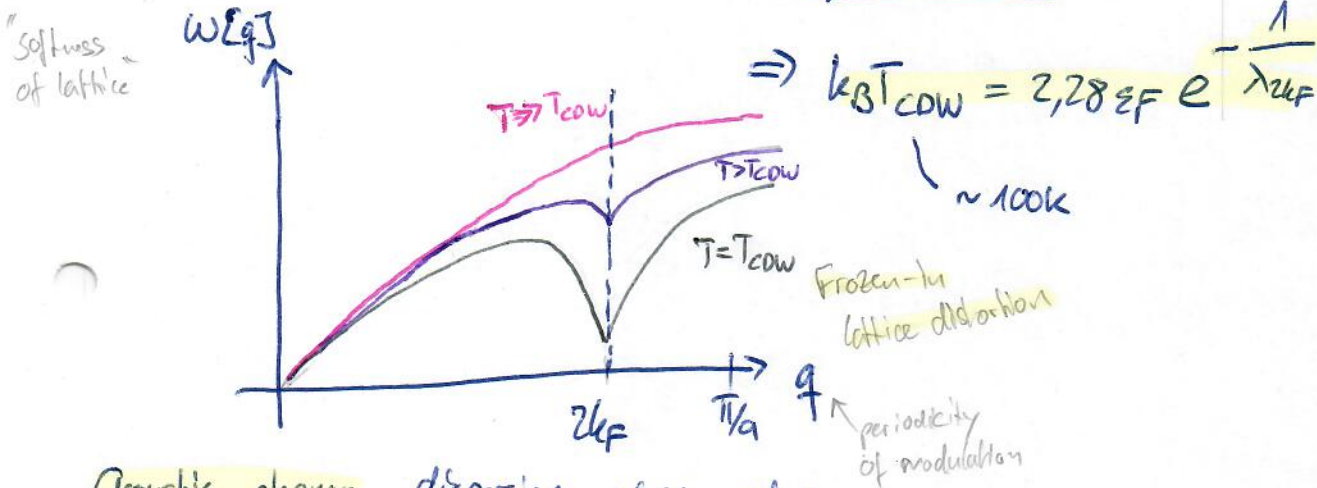 "Softness
of lattice"
ω[q]
⇒ k_BT_CDW = 2,28 ε_F e^{-1/λ_{2k_F}}
~100K
T≫T_CDW
T>T_CDW
T=T_CDW
Frozen-in
lattice distortion
2k_F
π/a
q
periodicity
of modulation
Acoustic phonon dispersion